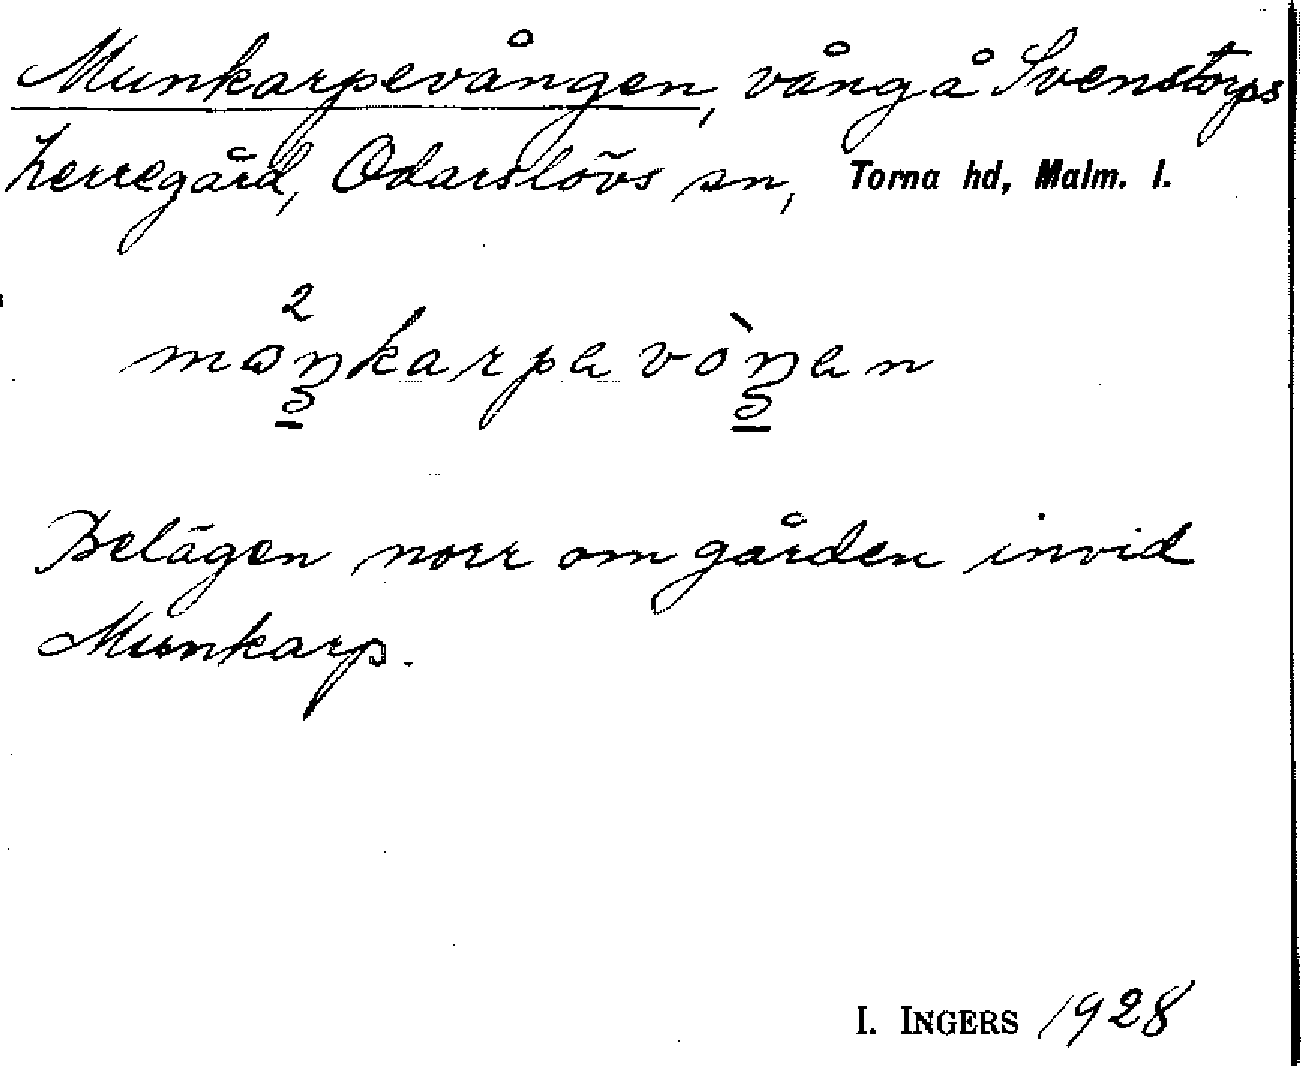 Munkarpevången, vång å Svenstorps
herregård, Odarslövs sn, Torna hd, Malm. l.
Belägen norr om gården invid
Munkarp.
I. INGERS 1928